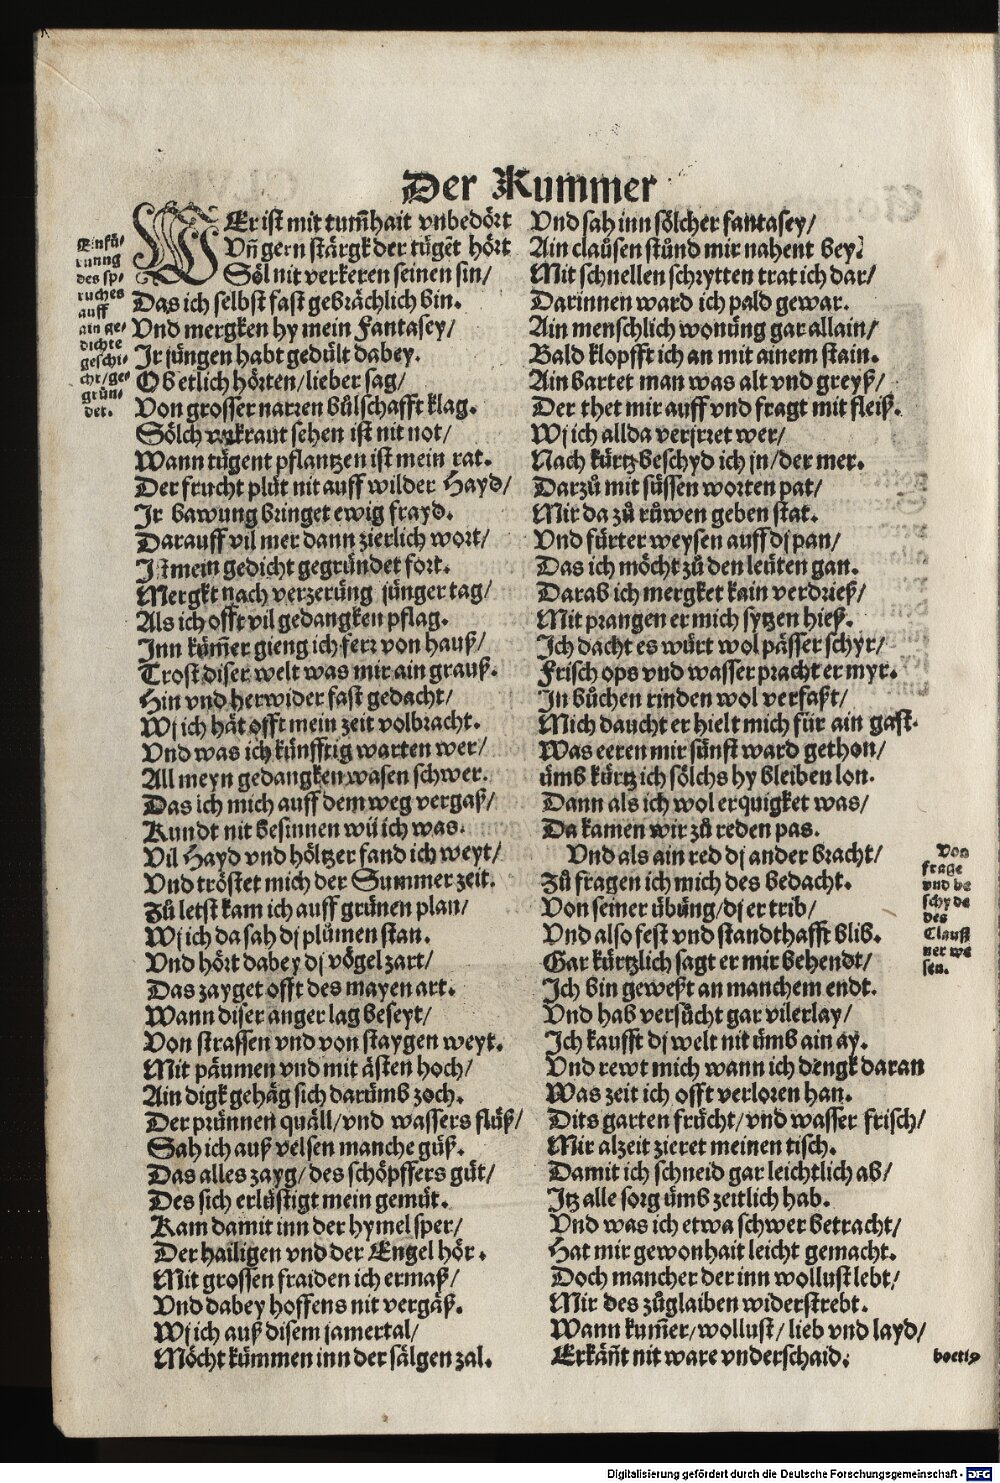 Der Kummer
WEr ist mit tum̃hait vnbedört
Vn̄ gern stärgk der tügẽt hört
Söl nit verkeren seinen sin/
Das ich selbst fast gebrächlich bin.
Vnd mergken hy mein Fantasey/
Jr jüngen habt gedült dabey.
Ob etlich hörten/lieber sag/
Von grosser narren bůlschafft klag.
Sölch vnkraut sehen ist nit not/
Wann tügent pflantzen ist mein rat.
Der frucht plüt nit auff wilder Hayd/
Jr bawung bringet ewig frayd.
Darauff vil mer dann zierlich wort/
Jst mein gedicht gegründet fort.
Mergkt nach verzerüng jünger tag/
Als ich offt vil gedangken pflag.
Jnn küm̃er gieng ich ferr von hauß/
Trost diser welt was mir ain grauß.
Hin vnd herwider fast gedacht/
Wj ich hät offt mein zeit volbracht.
Vnd was ich künfftig warten wer/
All meyn gedangken wasen schwer.
Das ich mich auff dem weg vergaß/
Kundt nit besinnen wü ich was.
Vil Hayd vnd höltzer fand ich weyt/
Vnd tröstet mich der Summer zeit.
Zů letst kam ich auff grünen plan/
Wj ich da sah dj plůmen stan.
Vnd hört dabey dj vögel zart/
Das zayget offt des mayen art.
Wann diser anger lag beseyt/
Von strassen vnd von staygen weyt.
Mit päumen vnd mit ästen hoch/
Ain digk gehäg sich darümb zoch.
Der prünnen quäll/vnd wassers flüß/
Sah ich auß velsen manche güß.
Das alles zayg/des schöpffers güt/
Des sich erlüstigt mein gemüt.
Kam damit inn der hymel sper/
Der hailigen vnd der Engel hör.
Mit grossen fraiden ich ermaß/
Vnd dabey hoffens nit vergäß.
Wj ich auß disem jamertal/
Möcht kümmen inn der sälgen zal.
Einfü-
runng
des sp-
ruches
auff
ain ge-
dichte
geschi-
cht/ge-
grün-
det.
Vnd sah inn sölcher fantasey/
Ain claüsen stůnd mir nahent bey.
Mit schnellen schrytten trat ich dar/
Darinnen ward ich pald gewar.
Ain menschlich wonüng gar allain/
Bald klopfft ich an mit ainem stain.
Ain bartet man was alt vnd greyß/
Der thet mir auff vnd fragt mit fleiß.
Wj ich allda verjrret wer/
Nach kürtz beschyd ich jn/der mer.
Darzů mit süssen worten pat/
Mir da zů růwen geben stat.
Vnd fürter weysen auff dj pan/
Das ich möcht zů den leüten gan.
Darab ich mergket kain verdrieß/
Mit prangen er mich sytzen hieß.
Jch dacht es würt wol pässer schyr/
Frisch ops vnd wasser pracht er myr.
Jn bůchen rinden wol verfaßt/
Mich daucht er hielt mich für ain gast.
Was eeren mir sünst ward gethon/
ümb kürtz ich sölchs hy bleiben lon.
Dann als ich wol erquigket was/
Da kamen wir zů reden pas.
Vnd als ain red dj ander bracht/
Zů fragen ich mich des bedacht.
Von seiner übüng/dj er trib/
Vnd also fest vnd standthafft blib.
Gar kürtzlich sagt er mir behendt/
Jch bin geweßt an manchem endt.
Vnd hab versůcht gar vilerlay/
Jch kaufft dj welt nit ümb ain ay.
Vnd rewt mich wann ich dengk daran
Was zeit ich offt verloren han.
Dits garten frücht/vnd wasser frisch/
Mir alzeit zieret meinen tisch.
Damit ich schneid gar leichtlich ab/
Jtz alle sorg ümb zeitlich hab.
Vnd was ich etwa schwer betracht/
Hat mir gewonhait leicht gemacht.
Doch mancher der inn wollust lebt/
Mir des zůglaiben widerstrebt.
Wann kum̃er/wollust/lieb vnd layd/
Erkäñt nit ware vnderschaid.
Von
frage
vnd be
schyde
des
Clauß
ner we
sen.
boetiꝰ
Digitalisierung gefördert durch die Deutsche Forschungsgemeinschaft - DFG